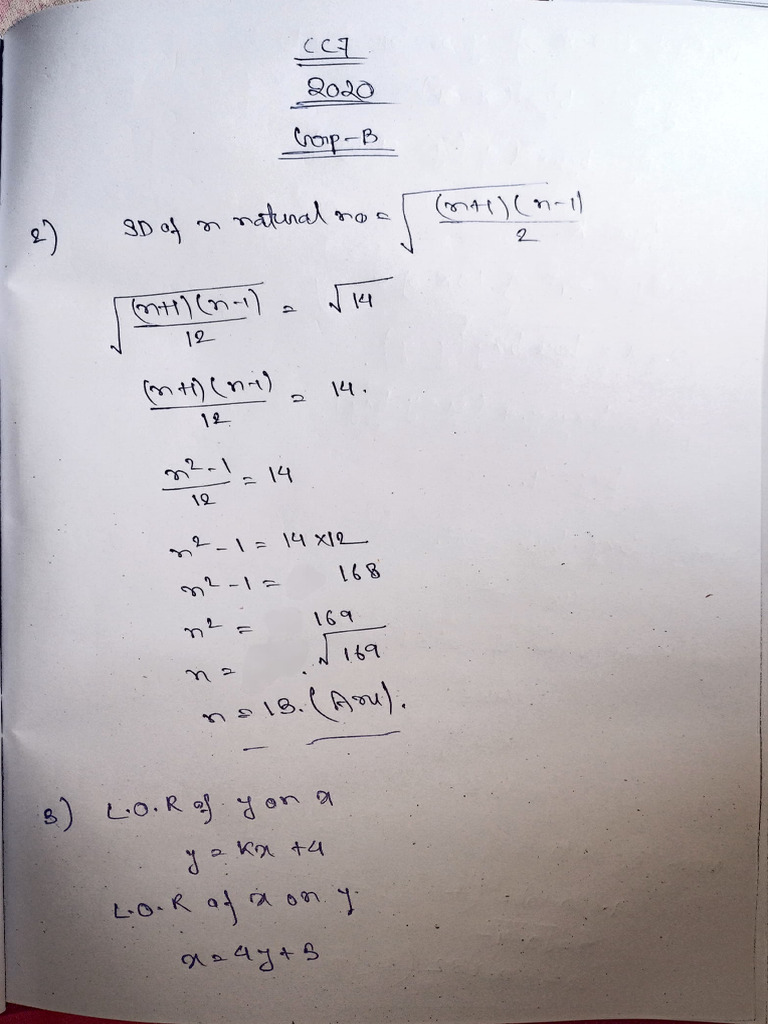 CC7
2020
Group-B
2) SD of n natural no = √((n+1)(n-1)/2)
√((n+1)(n-1)/12) = √14
(n+1)(n-1)/12 = 14.
n²-1/12 = 14
n²-1 = 14×12
n²-1 = 168
n² = 169
n = √169
n = 13. (Ans).
3) L.O.R of y on x
y = kx +4
L.O.R of x on y.
x = 4y+5